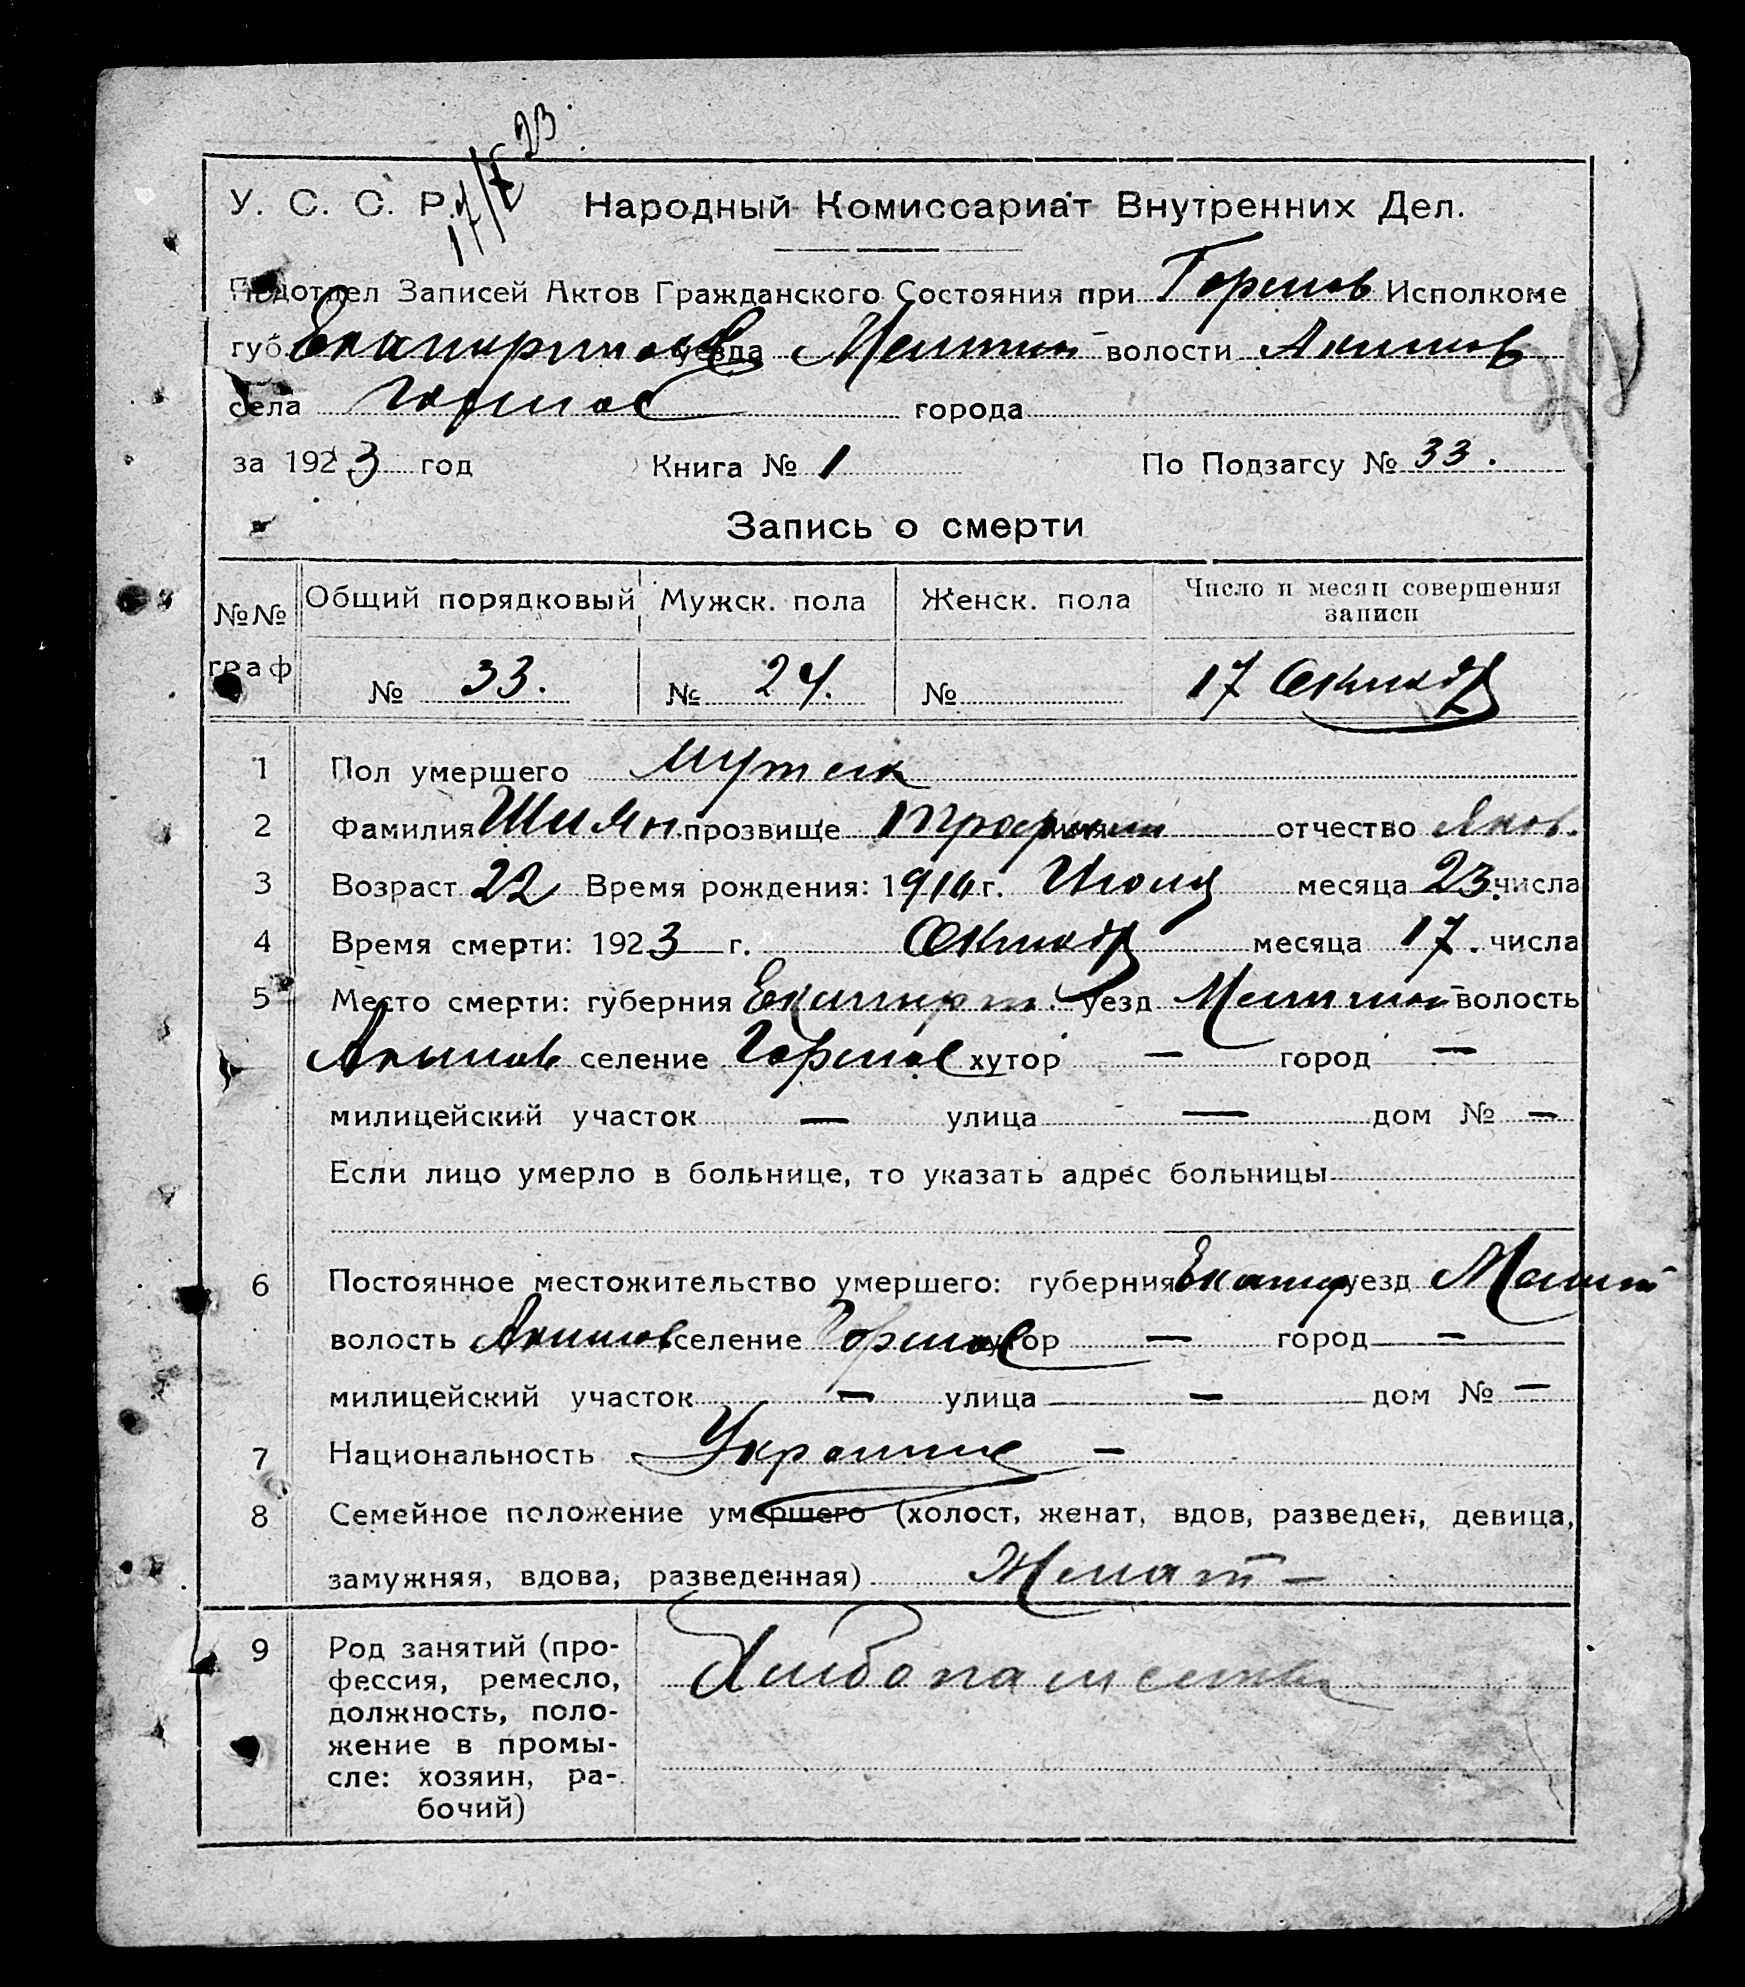 23.
17/X
У. С. С. Р. Народный Комиссариат Внутренних Дел.
Подотдел Записей Актов Гражданского Состояния при Горшов Исполкоме
губ. уезда Мелит волости Акимов
села города
за 1923 год Книга № 1 По Подзагсу № 33.
Запись о смерти
№№ граф Общий порядковый Мужск. пола Женск. пола Число и месяц совершения записи
№ 33. № 24. № 17 Октяб
1 Пол умершего
2 Фамилия Шиян прозвище Трофим имя отчество Яков.
3 Возраст 22 Время рождения: 19 г. Июля месяца 23. числа
4 Время смерти: 1923 г. Октяб месяца 17. числа
5 Место смерти: губерния Екатер уезд Мелит волость
Акимов селение хутор — город —
милицейский участок — улица — дом № —
Если лицо умерло в больнице, то указать адрес больницы
6 Постоянное местожительство умершего: губерния Екатер уезд Мелит
волость Акимов селение хутор — город —
милицейский участок — улица — дом № —
7 Национальность —
8 Семейное положение умершего (холост, женат, вдов, разведен, девица,
замужняя, вдова, разведенная) Женат —
9 Род занятий (про-
фессия, ремесло,
должность, поло-
жение в промы-
сле: хозяин, ра-
бочий)